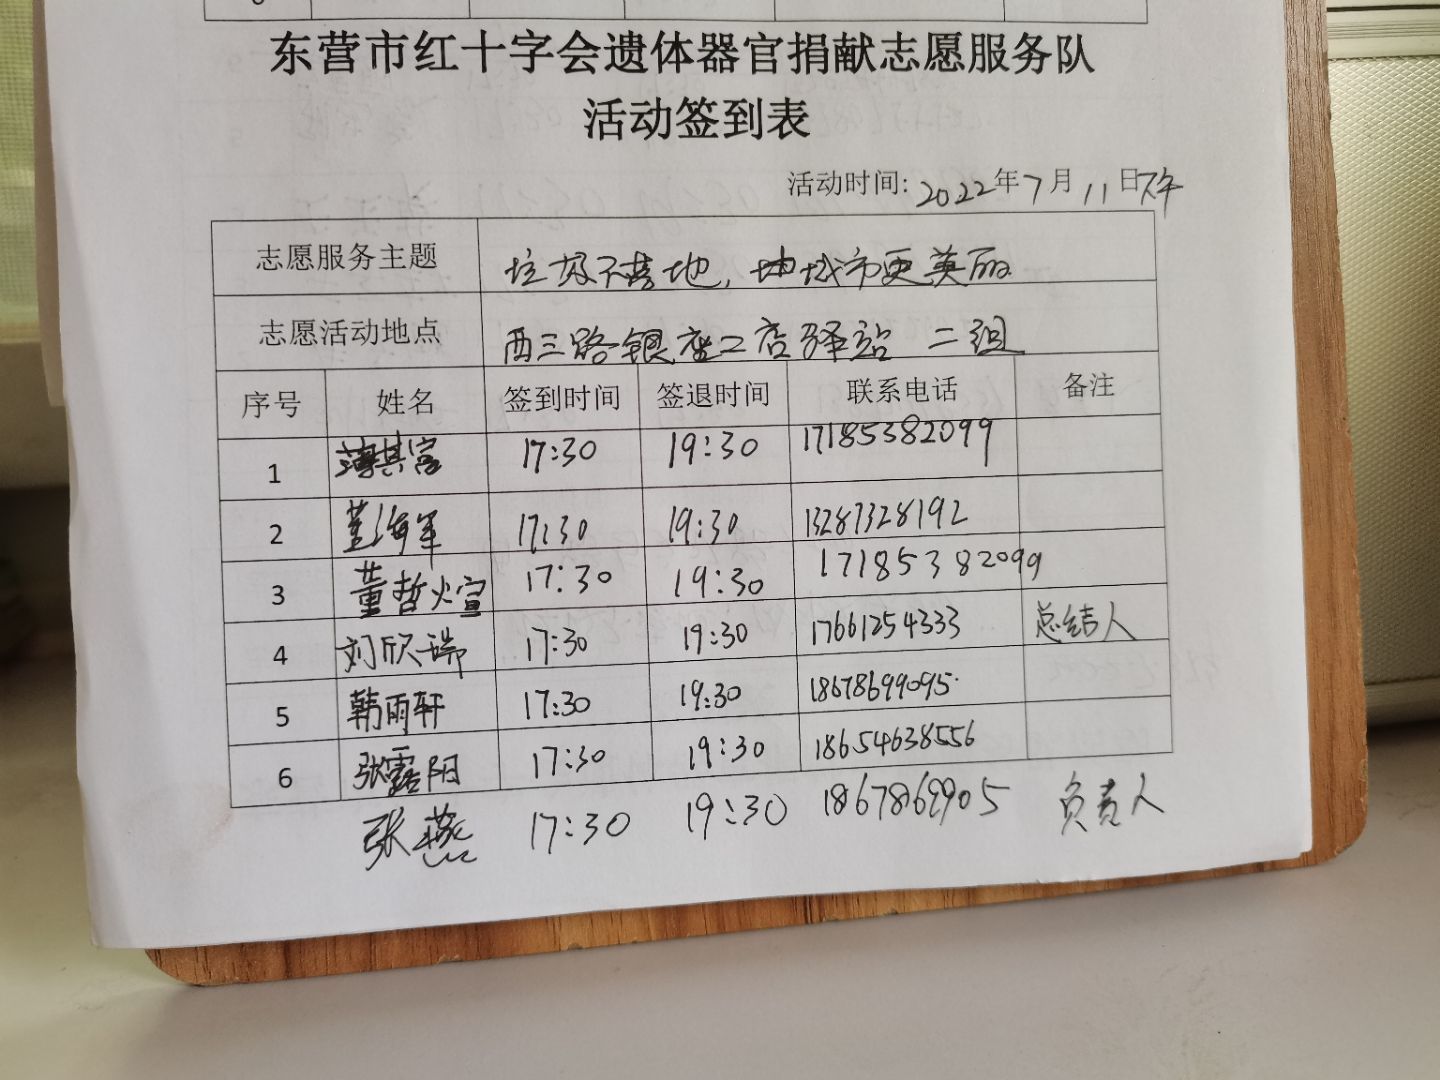 东营市红十字会遗体器官捐献志愿服务队
活动签到表
活动时间: 2022年7月11日下午
志愿服务主题 垃圾不落地,城市更美丽
志愿活动地点 西三路银座二店驿站 二组
序号 姓名 签到时间 签退时间 联系电话 备注
1 薄其富 17:30 19:30 17185382099
2 董海军 17:30 19:30 13287328192
3 董哲煊 17:30 19:30 17185382099
4 刘欣瑞 17:30 19:30 17661254333 总结人
5 韩雨轩 17:30 19:30 18678699095
6 张露阳 17:30 19:30 18654638556
张燕 17:30 19:30 1867869905 负责人